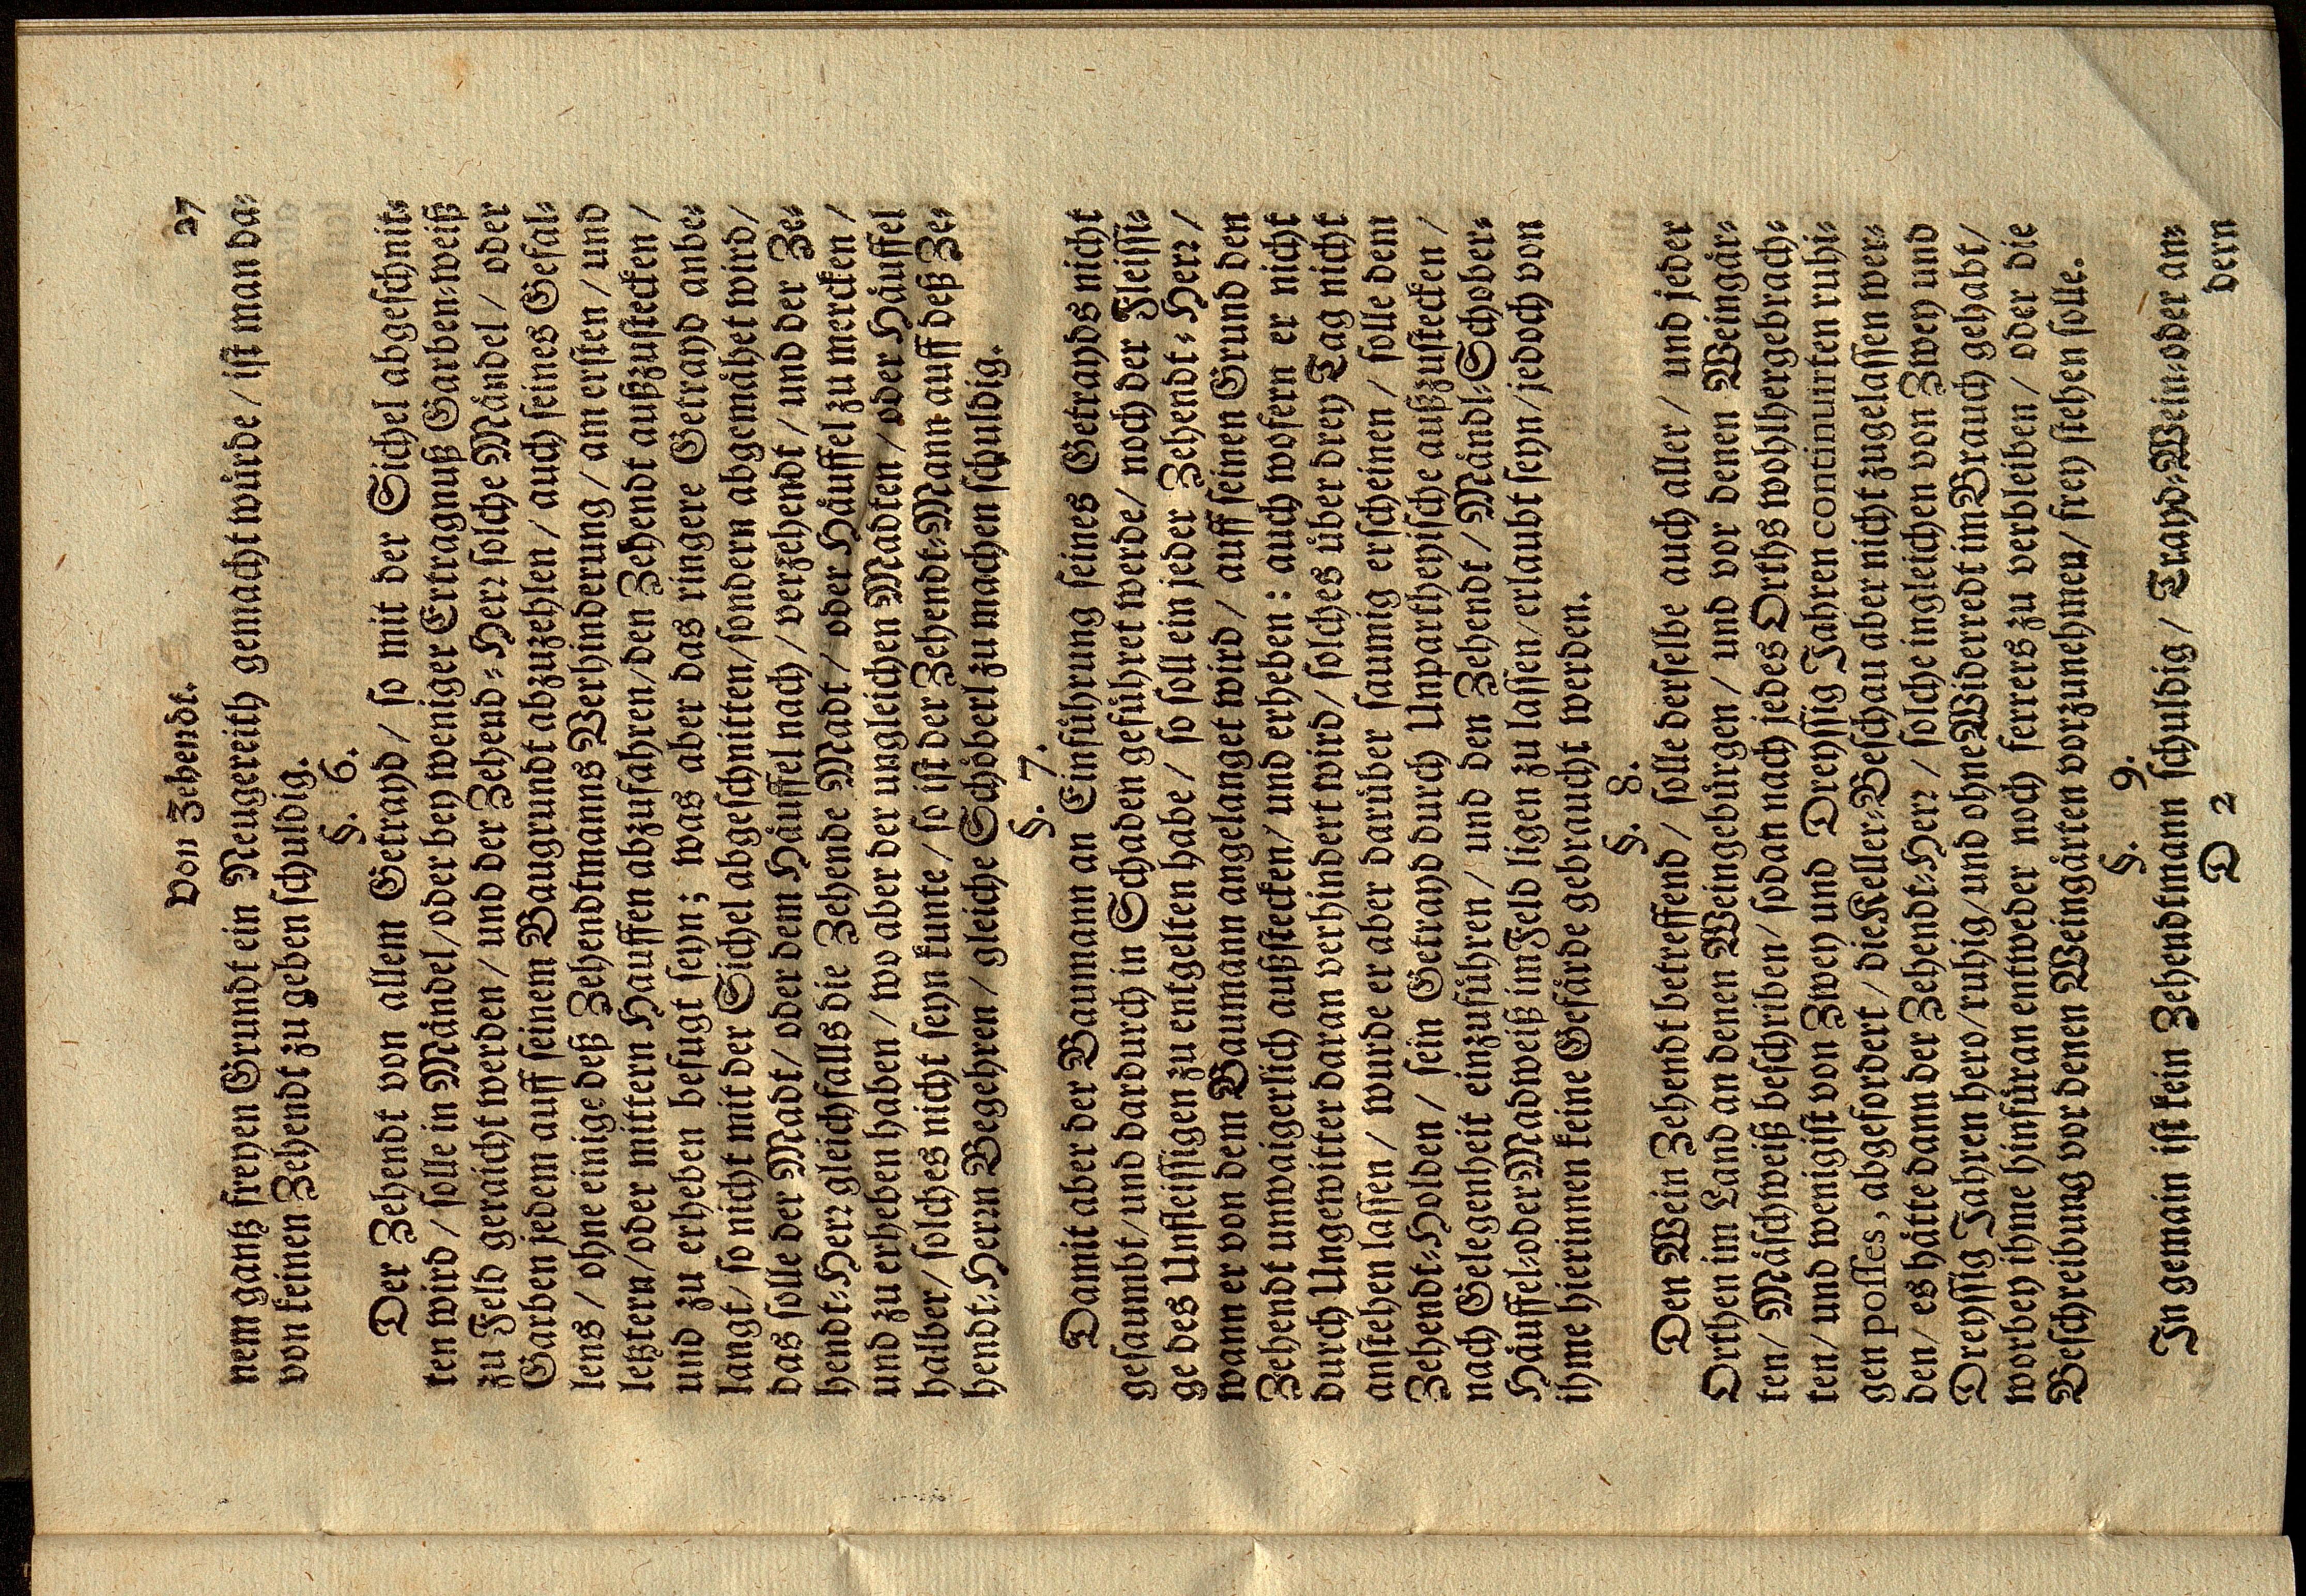 Von Zehendt. 27
nem gantz freyen Grundt ein Neugereith gemacht wurde / ist man da-
von keinen Zehendt zu geben schuldig.
§. 6.
Der Zehendt von allem Getrayd / so mit der Sichel abgeschnit-
ten wird / solle in Mändel / oder bey weniger Ertragnuß Garben-weiß
zu Feld geraicht werden / und der Zehend-Herr solche Mändel / oder
Garben jedem auff seinem Baugrundt abzuzehlen / auch seines Gefal-
lens / ohne einige deß Zehendtmanns Verhinderung / am ersten / und
letztern / oder mittern Hauffen abzufahren / den Zehendt außzustecken /
und zu erheben befugt seyn; was aber das ringere Getrayd anbe-
langt / so nicht mit der Sichel abgeschnitten / sondern abgemähet wird /
das solle der Madt / oder dem Häuffel nach / verzehendt / und der Ze-
hendt-Herr gleichfalls die Zehende Madt / oder Häuffel zu mercken /
und zu erheben haben / wo aber der ungleichen Madten / oder Häuffel
halber / solches nicht seyn kunte / so ist der Zehendt-Mann auff deß Ze-
hendt-Herrn Begehren / gleiche Schöberl zu machen schuldig.
§. 7.
Damit aber der Baumann an Einführung seines Getrayds nicht
gesaumbt / und dardurch in Schaden geführet werde / noch der Fleissi-
ge des Unfleissigen zu entgelten habe / so soll ein jeder Zehendt-Herr /
wann er von dem Baumann angelanget wird / auff seinen Grund den
Zehendt unwaigerlich außstecken / und erheben: auch wofern er nicht
durch Ungewitter daran verhindert wird / solches über drey Tag nicht
anstehen lassen / wurde er aber darüber saumig erscheinen / solle dem
Zehendt-Holden / sein Getrayd durch Unpartheyische außzustecken /
nach Gelegenheit einzuführen / und den Zehendt / Mändl-Schober-
Häuffel-oder Madweiß im Feld ligen zu lassen / erlaubt seyn / jedoch von
ihme hierinnen keine Gefärde gebraucht werden.
§. 8.
Den Wein Zehendt betreffend / solle derselbe auch aller / und jeder
Orthen im Land an denen Weingebürgen / und vor denen Weingär-
ten / Mäschweiß beschriben / sodan nach jedes Orths wohlhergebrach-
ten / und wenigist von Zwey und Dreyssig Jahren continuirten ruhi-
gen posses, abgefordert / die Keller-Beschau aber nicht zugelassen wer-
den / es hätte dann der Zehendt-Herr / solche ingleichen von Zwey und
Dreyssig Jahren hero / ruhig / und ohne Widerredt im Brauch gehabt /
worbey ihme hinfüran entweder noch ferrers zu verbleiben / oder die
Beschreibung vor denen Weingärten vorzunehmen / frey stehen solle.
§. 9.
In gemain ist kein Zehendtmann schuldig / Trayd-Wein-oder an-
D 2 dern